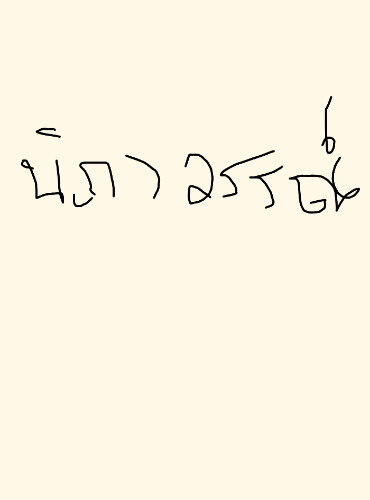 นิภาวรรณ์